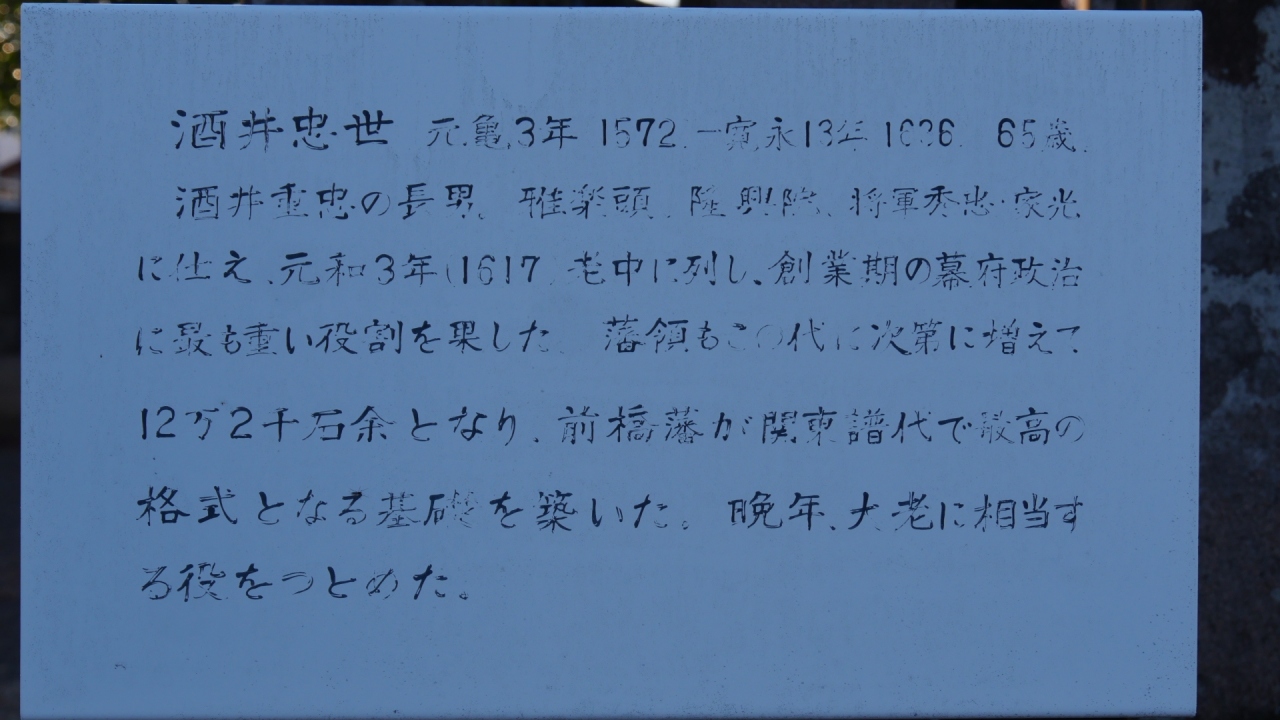 酒井忠世 元亀3年 1572 ー寛永13年 1636 65歳
酒井重忠の長男、雅楽頭、隆興院、将軍秀忠・家光
に仕え、元和3年(1617 老中に列し、創業期の幕府政治
に最も重い役割を果した。藩領もこの代に次第に増えて
12万2千石余となり、前橋藩が関東譜代で最高の
格式となる基礎を築いた。晩年、大老に相当す
る役をつとめた。